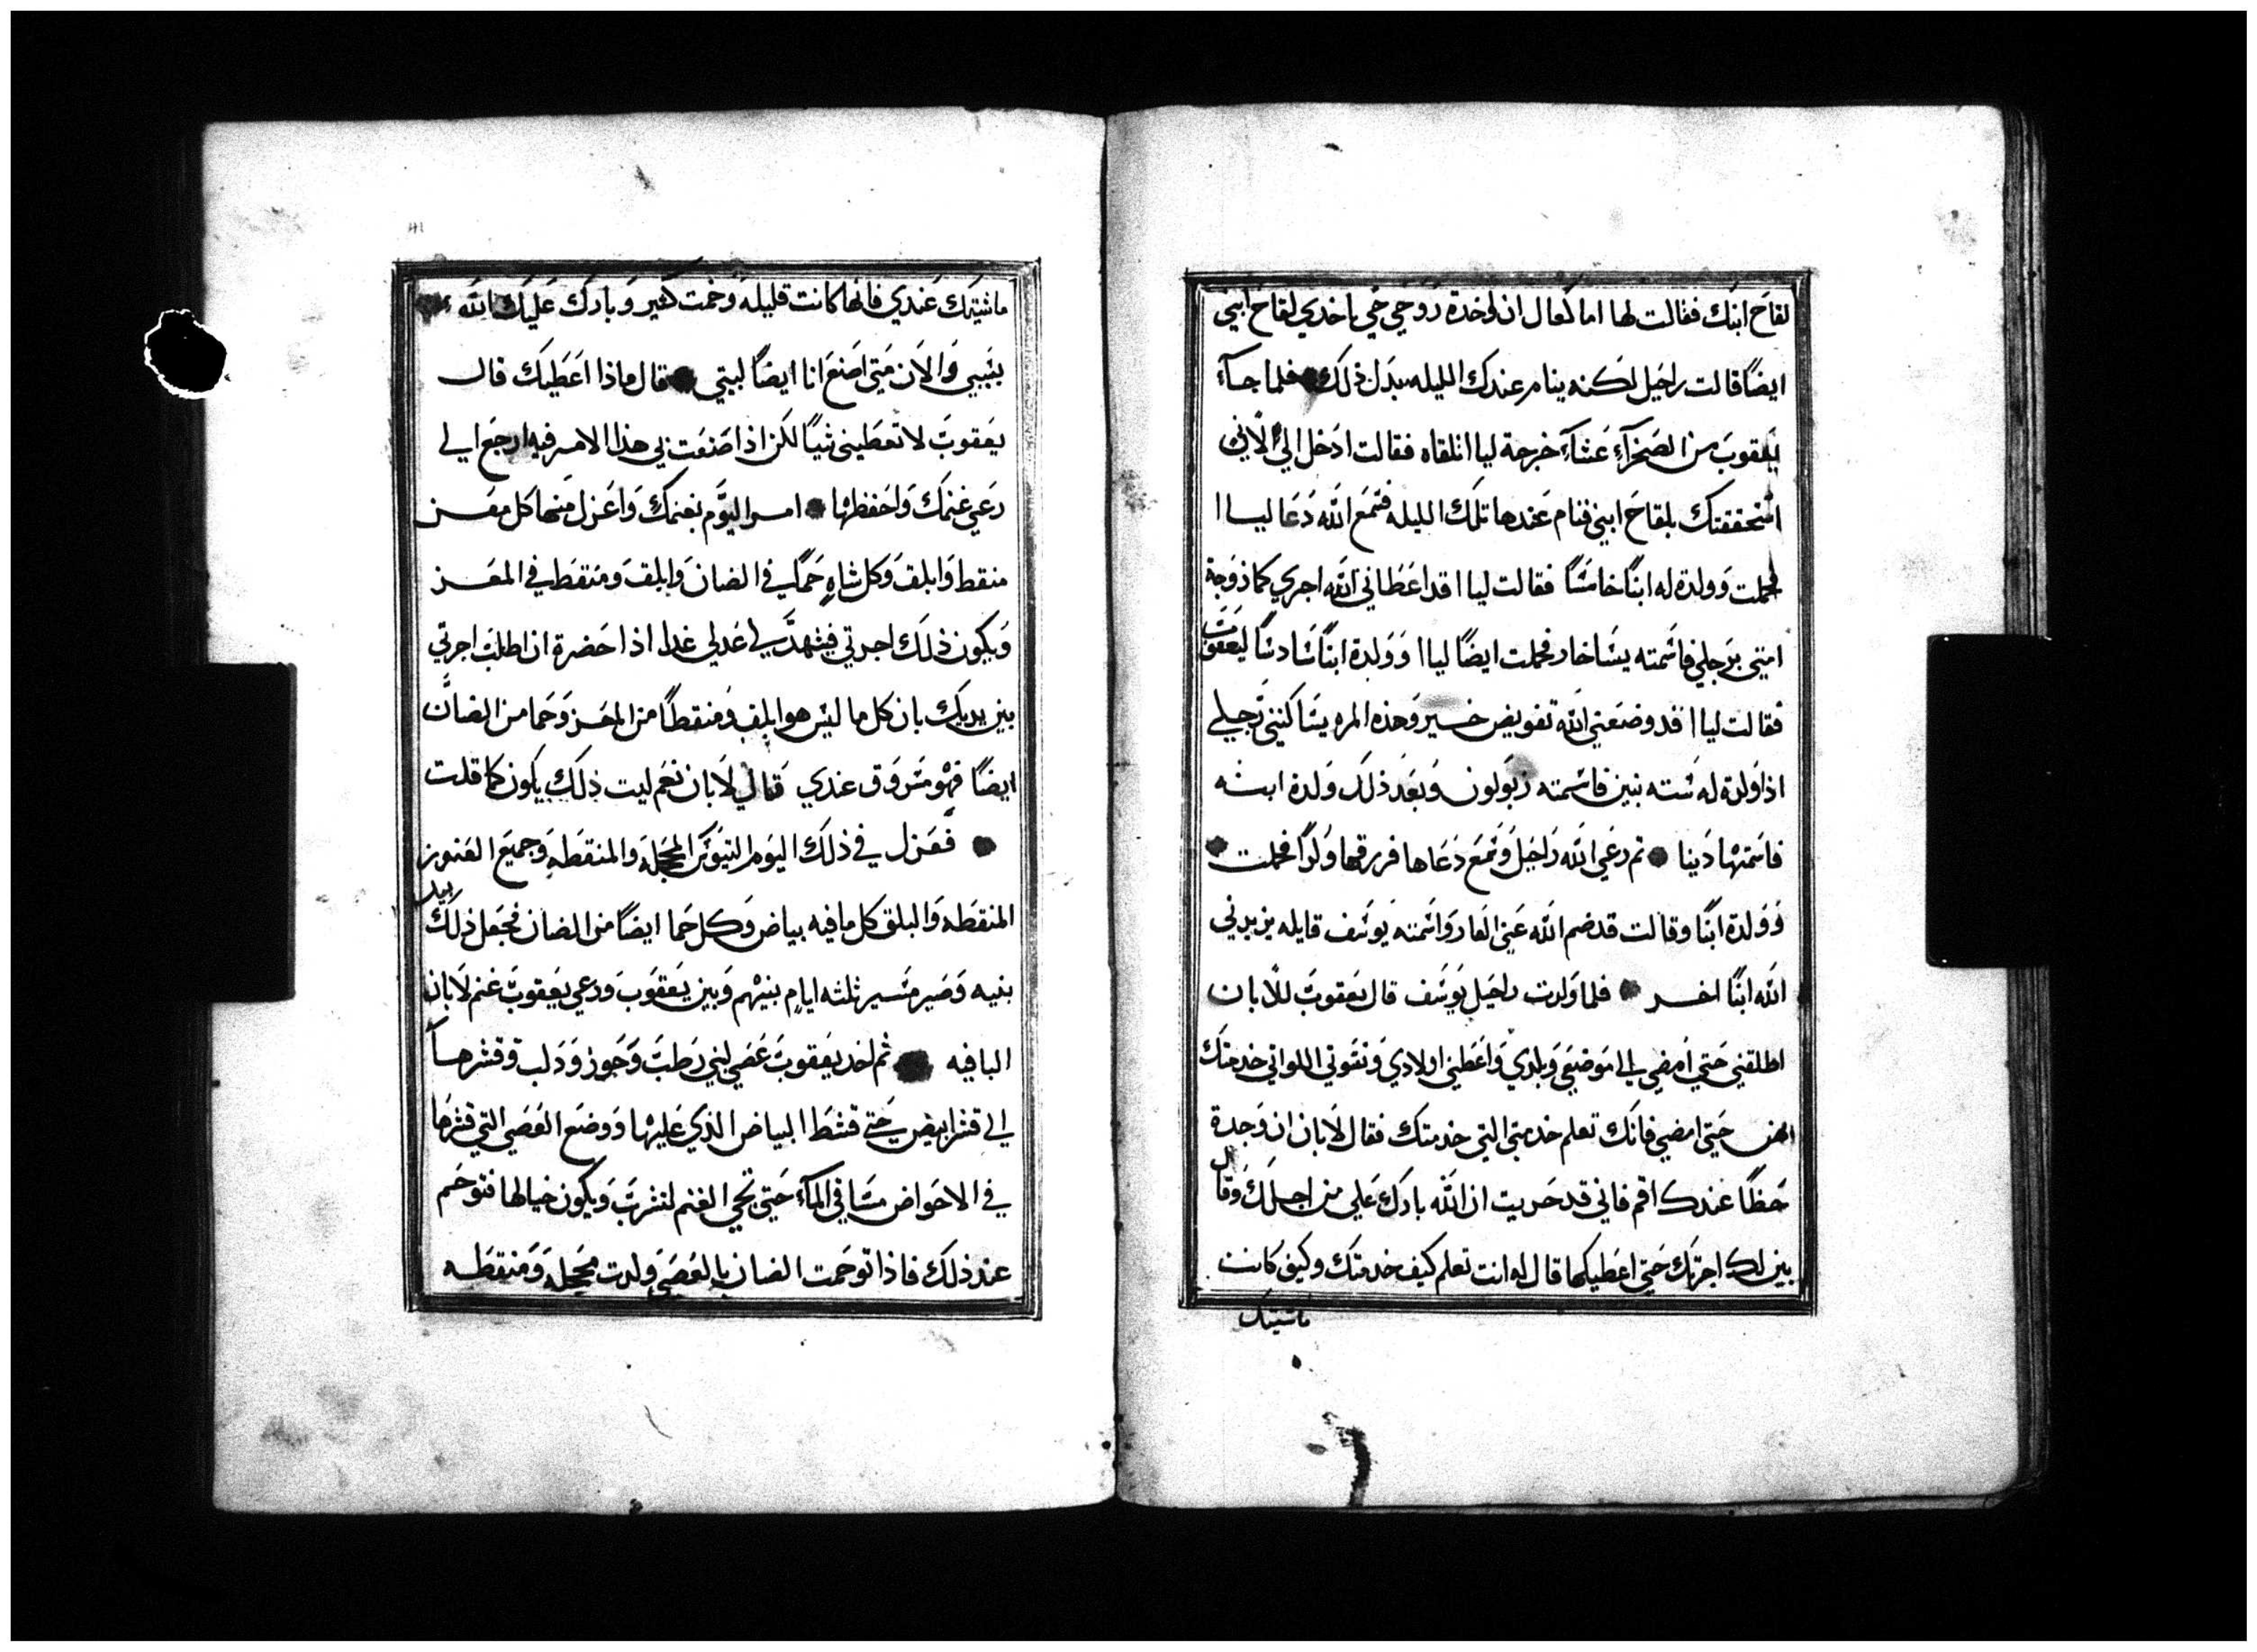 لقاح ابنك فقالت لها اما كفال ان لوخدة زوجي حتي تاخدي لقاح ابني
ايضًا قالت راحيل لكنه ينام عندك الليله بدل ذلك فلما جآء
يعقوب من الصحرآء عشآء خرجة ليا اتلقاه فقالت ادخل الي لاني
استحققتك بلقاح ابني فنام عندها تلك الليله فسمع الله دعا ليا ا
فحملت وولدة له ابنًا خامسًا فقالت ليا ا قد اعطاني الله اجري كما زوجة
امتي برجلي فاسمته يساخار فحملت ايضًا ليا ا وولدة ابنًا سادسًا ليعقوب
فقالت ليا ا قد وضعني الله تفويض خير وهذه المره يساكنني رجلي
اذا ولدة له سته بنين فاسمته زبولون وبعد ذلك ولدة ابنه
فاسمتها دينا تم رعي الله راحيل وسمع دعاها فررقها ولدًا فحملت
وولدة ابنًا وقالت قد ضم الله عني العار واسمته يوسف قايله يزيدني
الله ابنًا اخر فلما ولدت راحيل يوسف قال يعقوب للابان
اطلقني حتي امضي الي موضعي وبلدي واعطني اولادي ونسوتي اللواتي خدمتك
لهن حتي امضي فانك تعلم خدمتي التي خدمتك فقال لابان ان وجدة
حظًا عندك اقم فاني قد جربت ان الله بارك علي من اجلك وقال
بين لك اجرتك حتي اعطيكها قال له انت تعلم كيف خدمتك وكيف كانت
ماشيتك
ماشيتك عندي فانها كانت قليله ونمت كثير وبارك عليك الله
بسببي والان متي اصنع انا ايضًا لبيتي قال ماذا اعطيك قال
يعقوب لا تعطيني شيًا لكن اذا صنعت بي هذا الامر فيه ارجع الي
رعي غنمك واحفظها امر اليوم بغنمك واعزل منها كل معز
منقط وابلق وكل شاه حما في الضان وابلق ومنقط في المعز
ويكون ذلك اجرتي فيشهد لي عدلي غدا اذا حضرة ان اطلب اجرتي
بين يديك بان كل ما ليس هو ابلق ومنقطًا من المعز وحما من الضان
ايضًا فهو مسروق عندي قال لابان نعم ليت ذلك يكون كما قلت
فعزل في ذلك اليوم التيوس المحجله والمنقطه وجميع العنوز
المنقطه والبلق كل ما فيه بياض وكل حما ايضًا من الضان فجعل ذلك بيد
بنيه وصير مسير ثلثه ايام بينهم وبين يعقوب ورعي يعقوب غنم لابان
الباقيه ثم اخد يعقوب عصي لبني رطب وجوز ودلب وقشرهآ
الي قشر ابيض حتي قشط البياض الذي عليها ووضع العصي التي قشرها
في الاحواض مسا في المآء حتي تجي الغنم لتشرب ويكون حيالها فتوحم
عند ذلك فاذا توحمت الضان بالعصي ولدت محجله ومنقطه